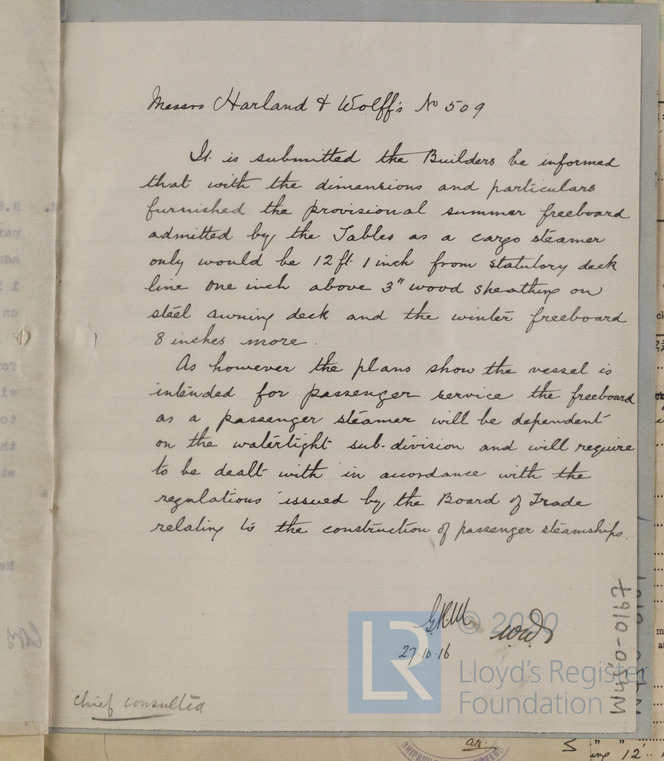 Messrs Harland & Wolff's No 509
It is submitted the Builders be informed
that with the dimensions and particulars
furnished the provisional summer freeboard
admitted by the Tables as a cargo steamer
only would be 12 ft 1 inch from statutory deck
line one inch above 3" wood sheathing on
steel awning deck and the winter freeboard
8 inches more.
As however the plans show the vessel is
intended for passenger service the freeboard
as a passenger steamer will be dependent
on the watertight sub-division and will require
to be dealt with in accordance with the
regulations issued by the Board of Trade
relating to the construction of passenger steamships.
27.10.16
Chief consulted
W450-0167
LR
© 2020
Lloyd's Register
Foundation